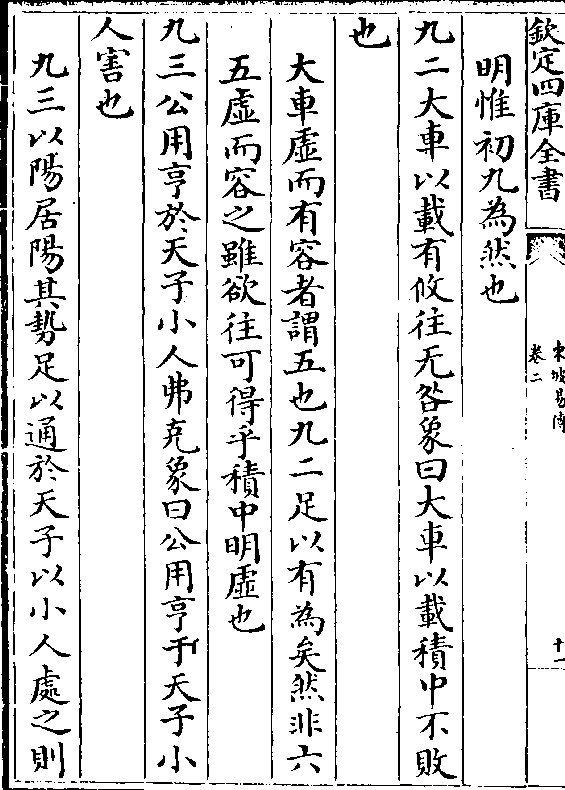 欽定四庫全書
東坡易傳
卷二
十一
明惟初九為然也
九二大車以載有攸往无咎象曰大車以載積中不敗
也
大車虛而有容者謂五也九二足以有為矣然非六
五虛而容之雖欲往可得乎積中明虛也
九三公用亨於天子小人弗克象曰公用亨于天子小
人害也
九三以陽居陽其勢足以通於天子以小人處之則